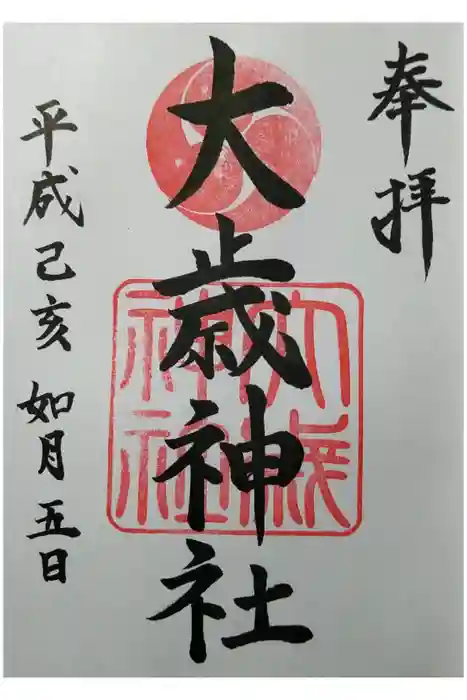 奉拝
大歳神社
大歳神社
平成己亥 如月五日